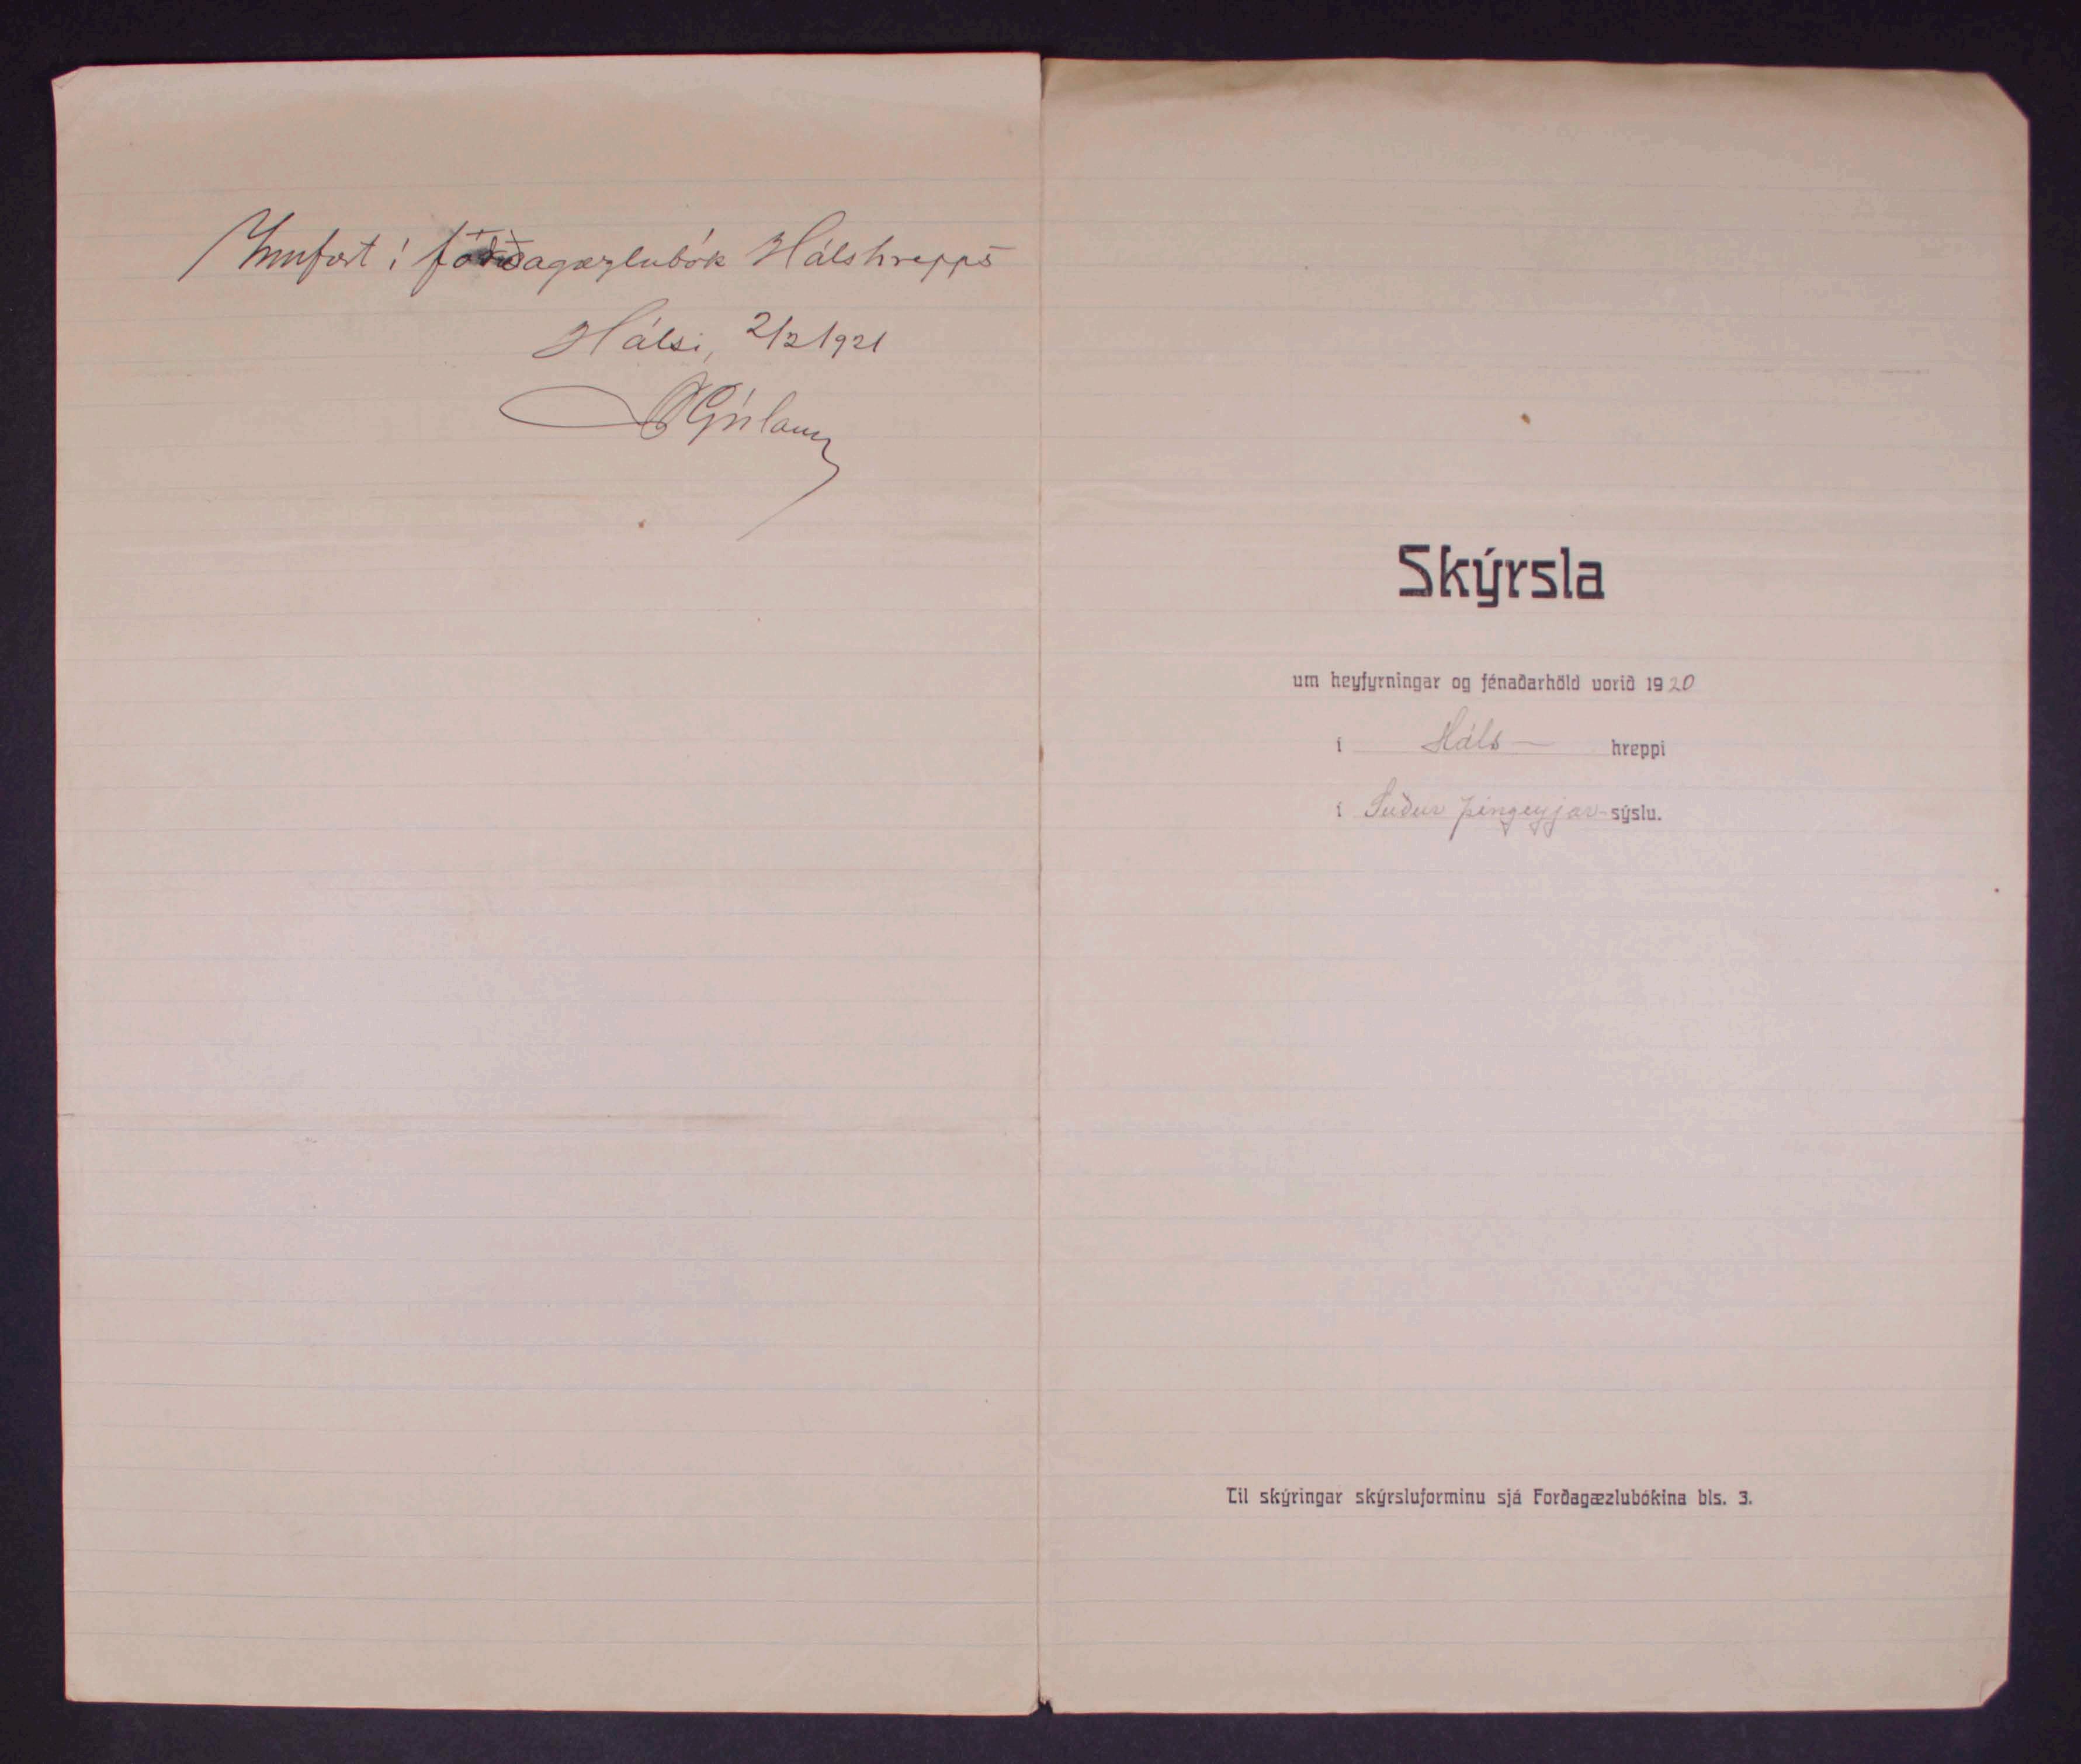 Innfært í forðagæzlubók Hálshrepps
Hálsi, 2/2 1921
Skýrsla
um heyfyrningar og fénaðarhöld vorið 1920
í Háls- hreppi
í Suður þingeyjar-sýslu.
Til skýringar skýrsluforminu sjá Forðagæzlubókina bls. 3.